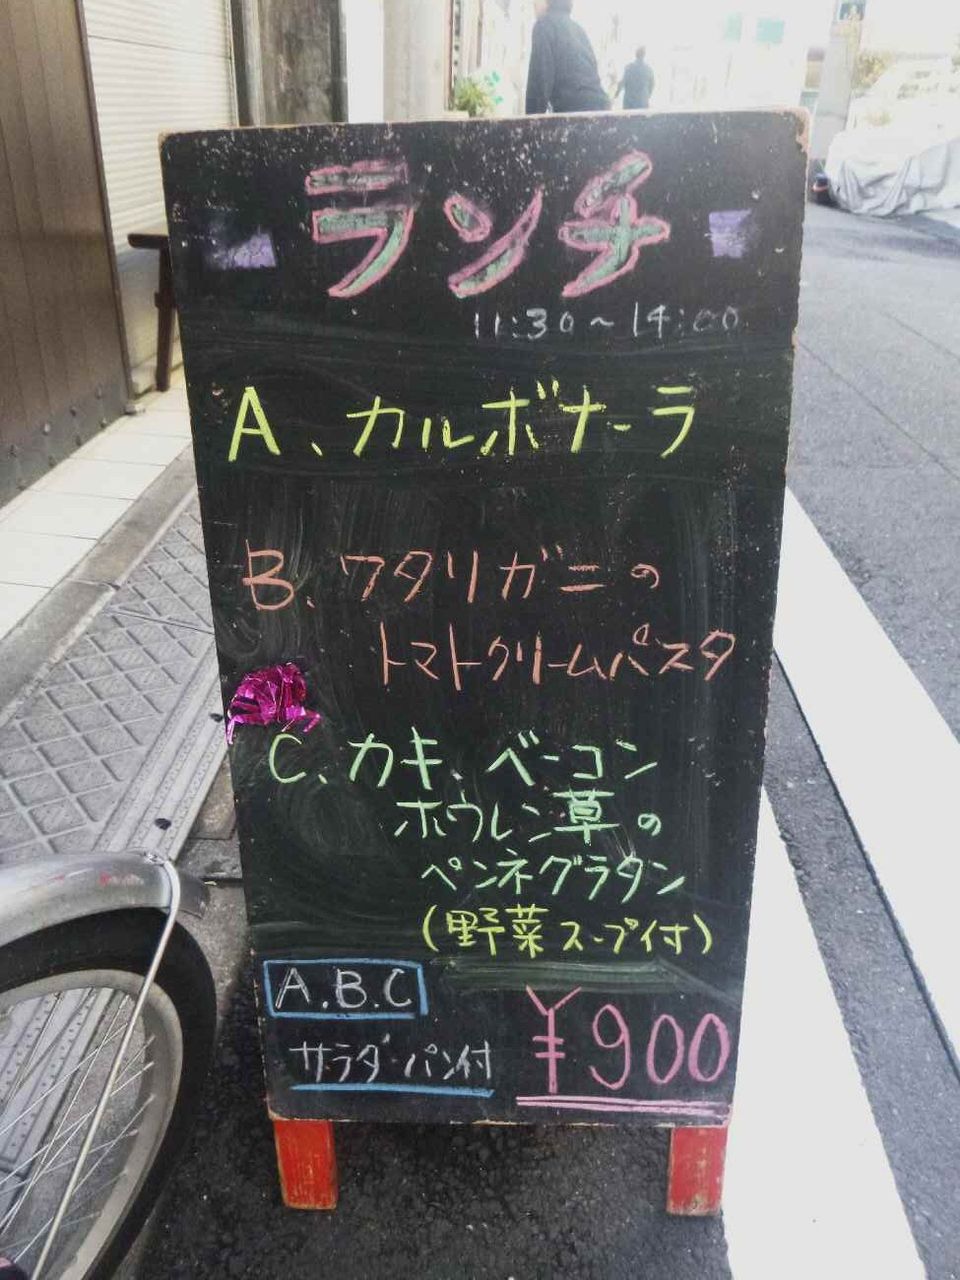 ランチ
11:30〜14:00
A、カルボナーラ
B、ワタリガニの
トマトクリームパスタ
C、カキ、ベーコン
ホウレン草の
ペンネグラタン
(野菜スープ付)
A.B.C
サラダ・パン付
¥900